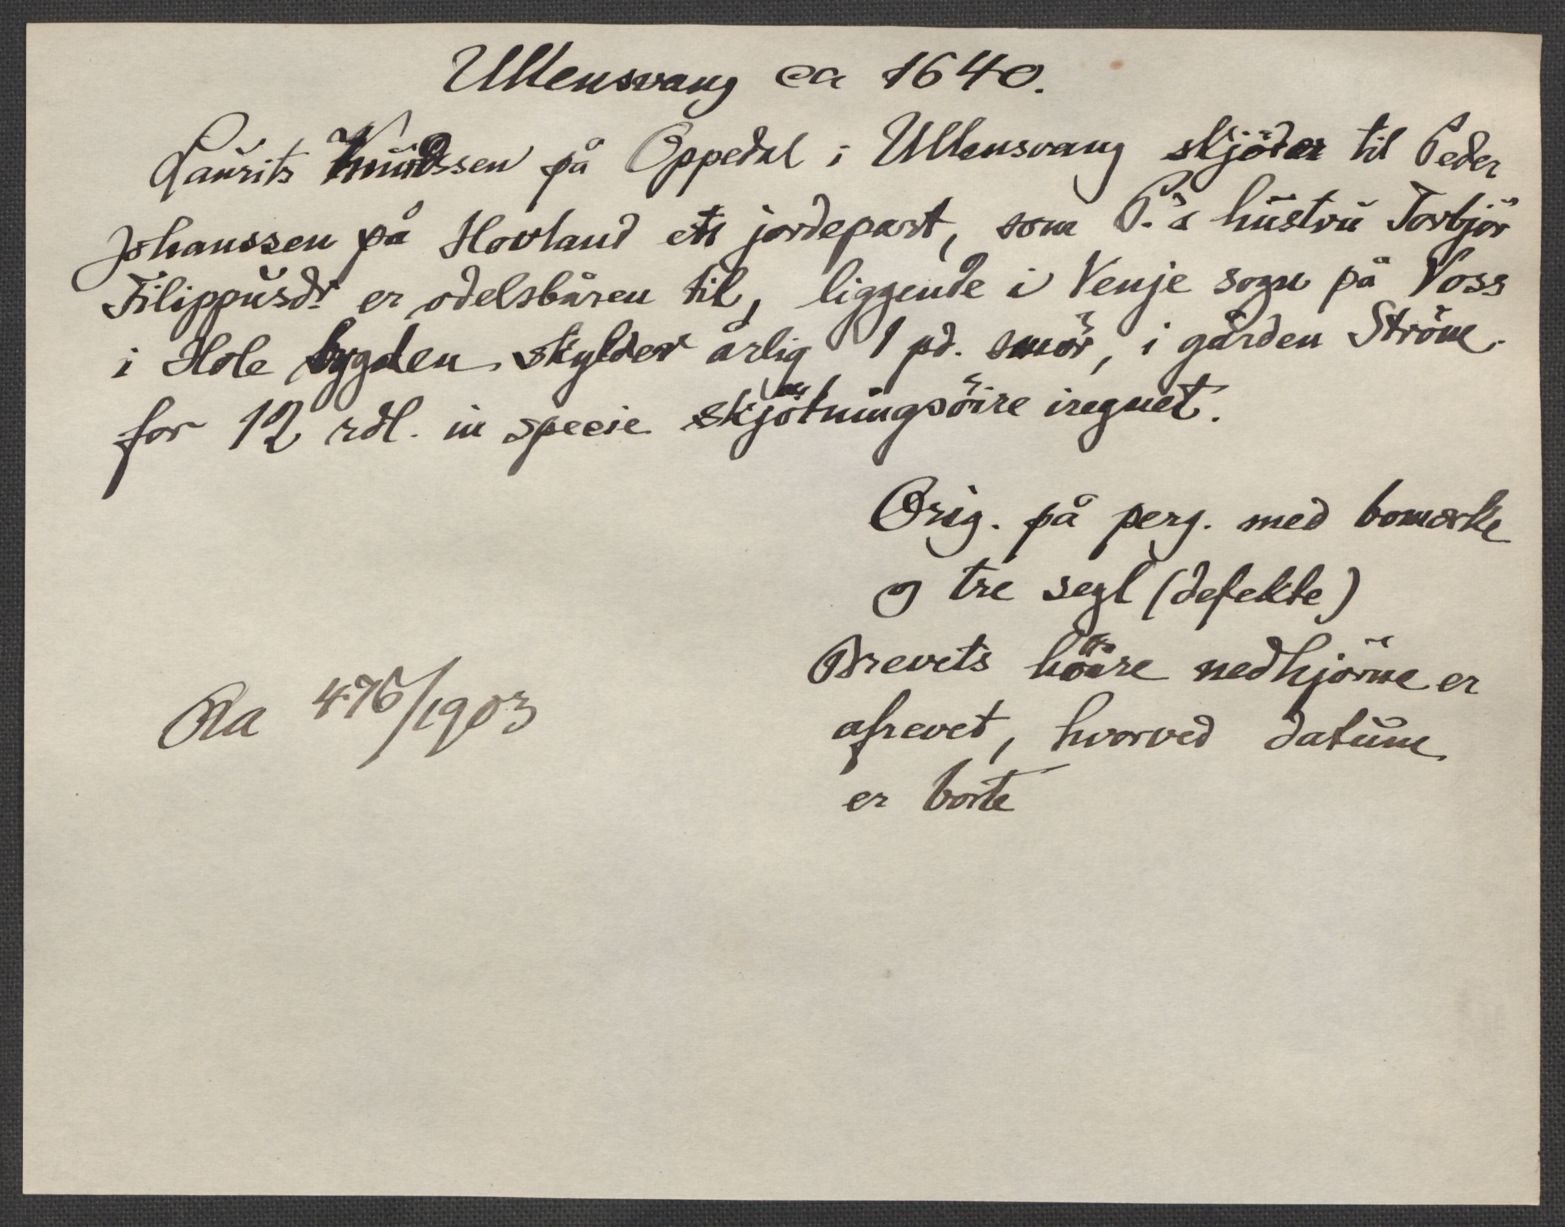 Ullensvang ca 1640.
Laurits Knudssen på Oppedal i Ullensvang skjöder til Peder
Johanssen på Hovland en jordepart, som P.s hustru Torbjör
Filippusdr er odelsbåren til, liggende i Venje sogn på Voss
i Hole bygden skylder årlig 1 pd. smör, i gården Ströme
for 12 rdl. in specie skjötningsöire iregnet.
Orig. på perg. med bomerke
og tre segl (defekte)
Brevets höire nedhjörne er
afrevet, hvorved datum
er borte
Ra 476/1903